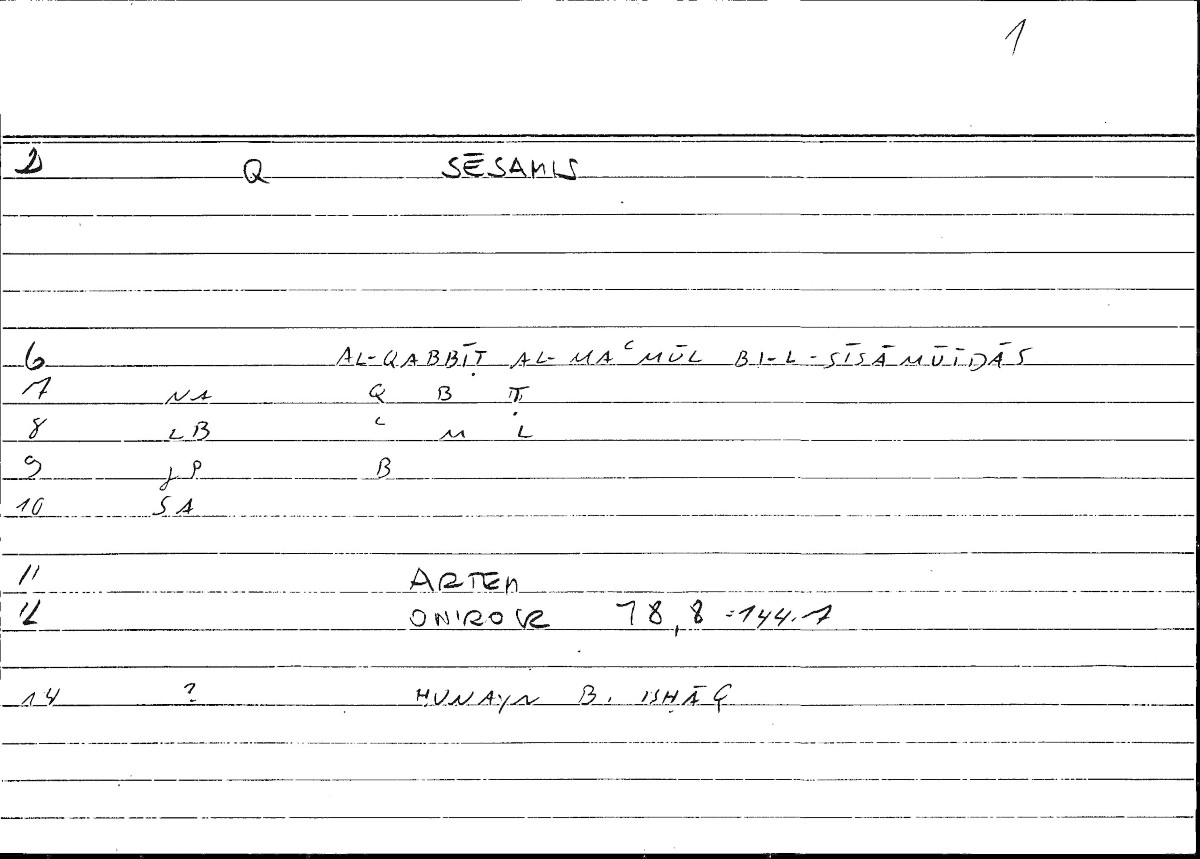 1
2 Q SĒSAMIS
6 AL-QABBĪṬ AL-MAᶜMŪL BI-L-SĪSĀMŪĪDĀS
7 NA Q B Ṭ
8 LB ᶜ M L
9 JP B
10 SA
11 ARTEM
12 ONIROCR 78,8 =144.7
14 ? ḤUNAYN B. ISḤĀQ